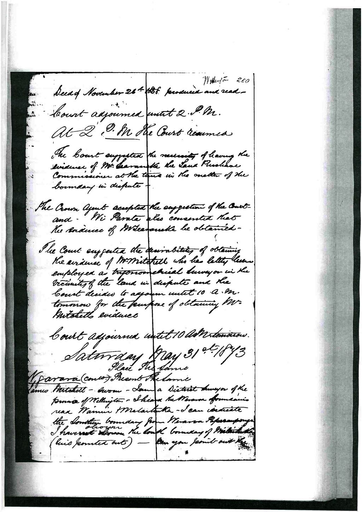 Wellington 200
Deed of November 26th 185 produced and read
Court adjourned until 2 P.M.
At 2 P.M. the Court resumed
The Court suggested the necessity of having the
evidence of Mr the Land Purchase
Commissioner at the time in the matter of the
boundary in dispute -
The Crown Agent accepted the suggestion of the Court
and - Wi Parata also consented that
the evidence of be obtained -
The Court suggested the desirability of obtaining
the evidence of Mr Mitchell who has lately been
employed as Trigonometrical Surveyor in the
vicinity of the land in dispute and the
Court decided to adjourn until 10 A.M.
tomorrow for the purpose of obtaining Mr
Mitchells evidence
Court adjourned until 10 A.M. tomorrow
Saturday May 31st 1873
Place the same
Ngarara (contd) Present the same
James Mitchell - sworn - I am a District Surveyor of the
province of Wellington - I heard the names of
read - I can indicate
the boundary from
I the South boundary of
( pointed out) — Can you point out the